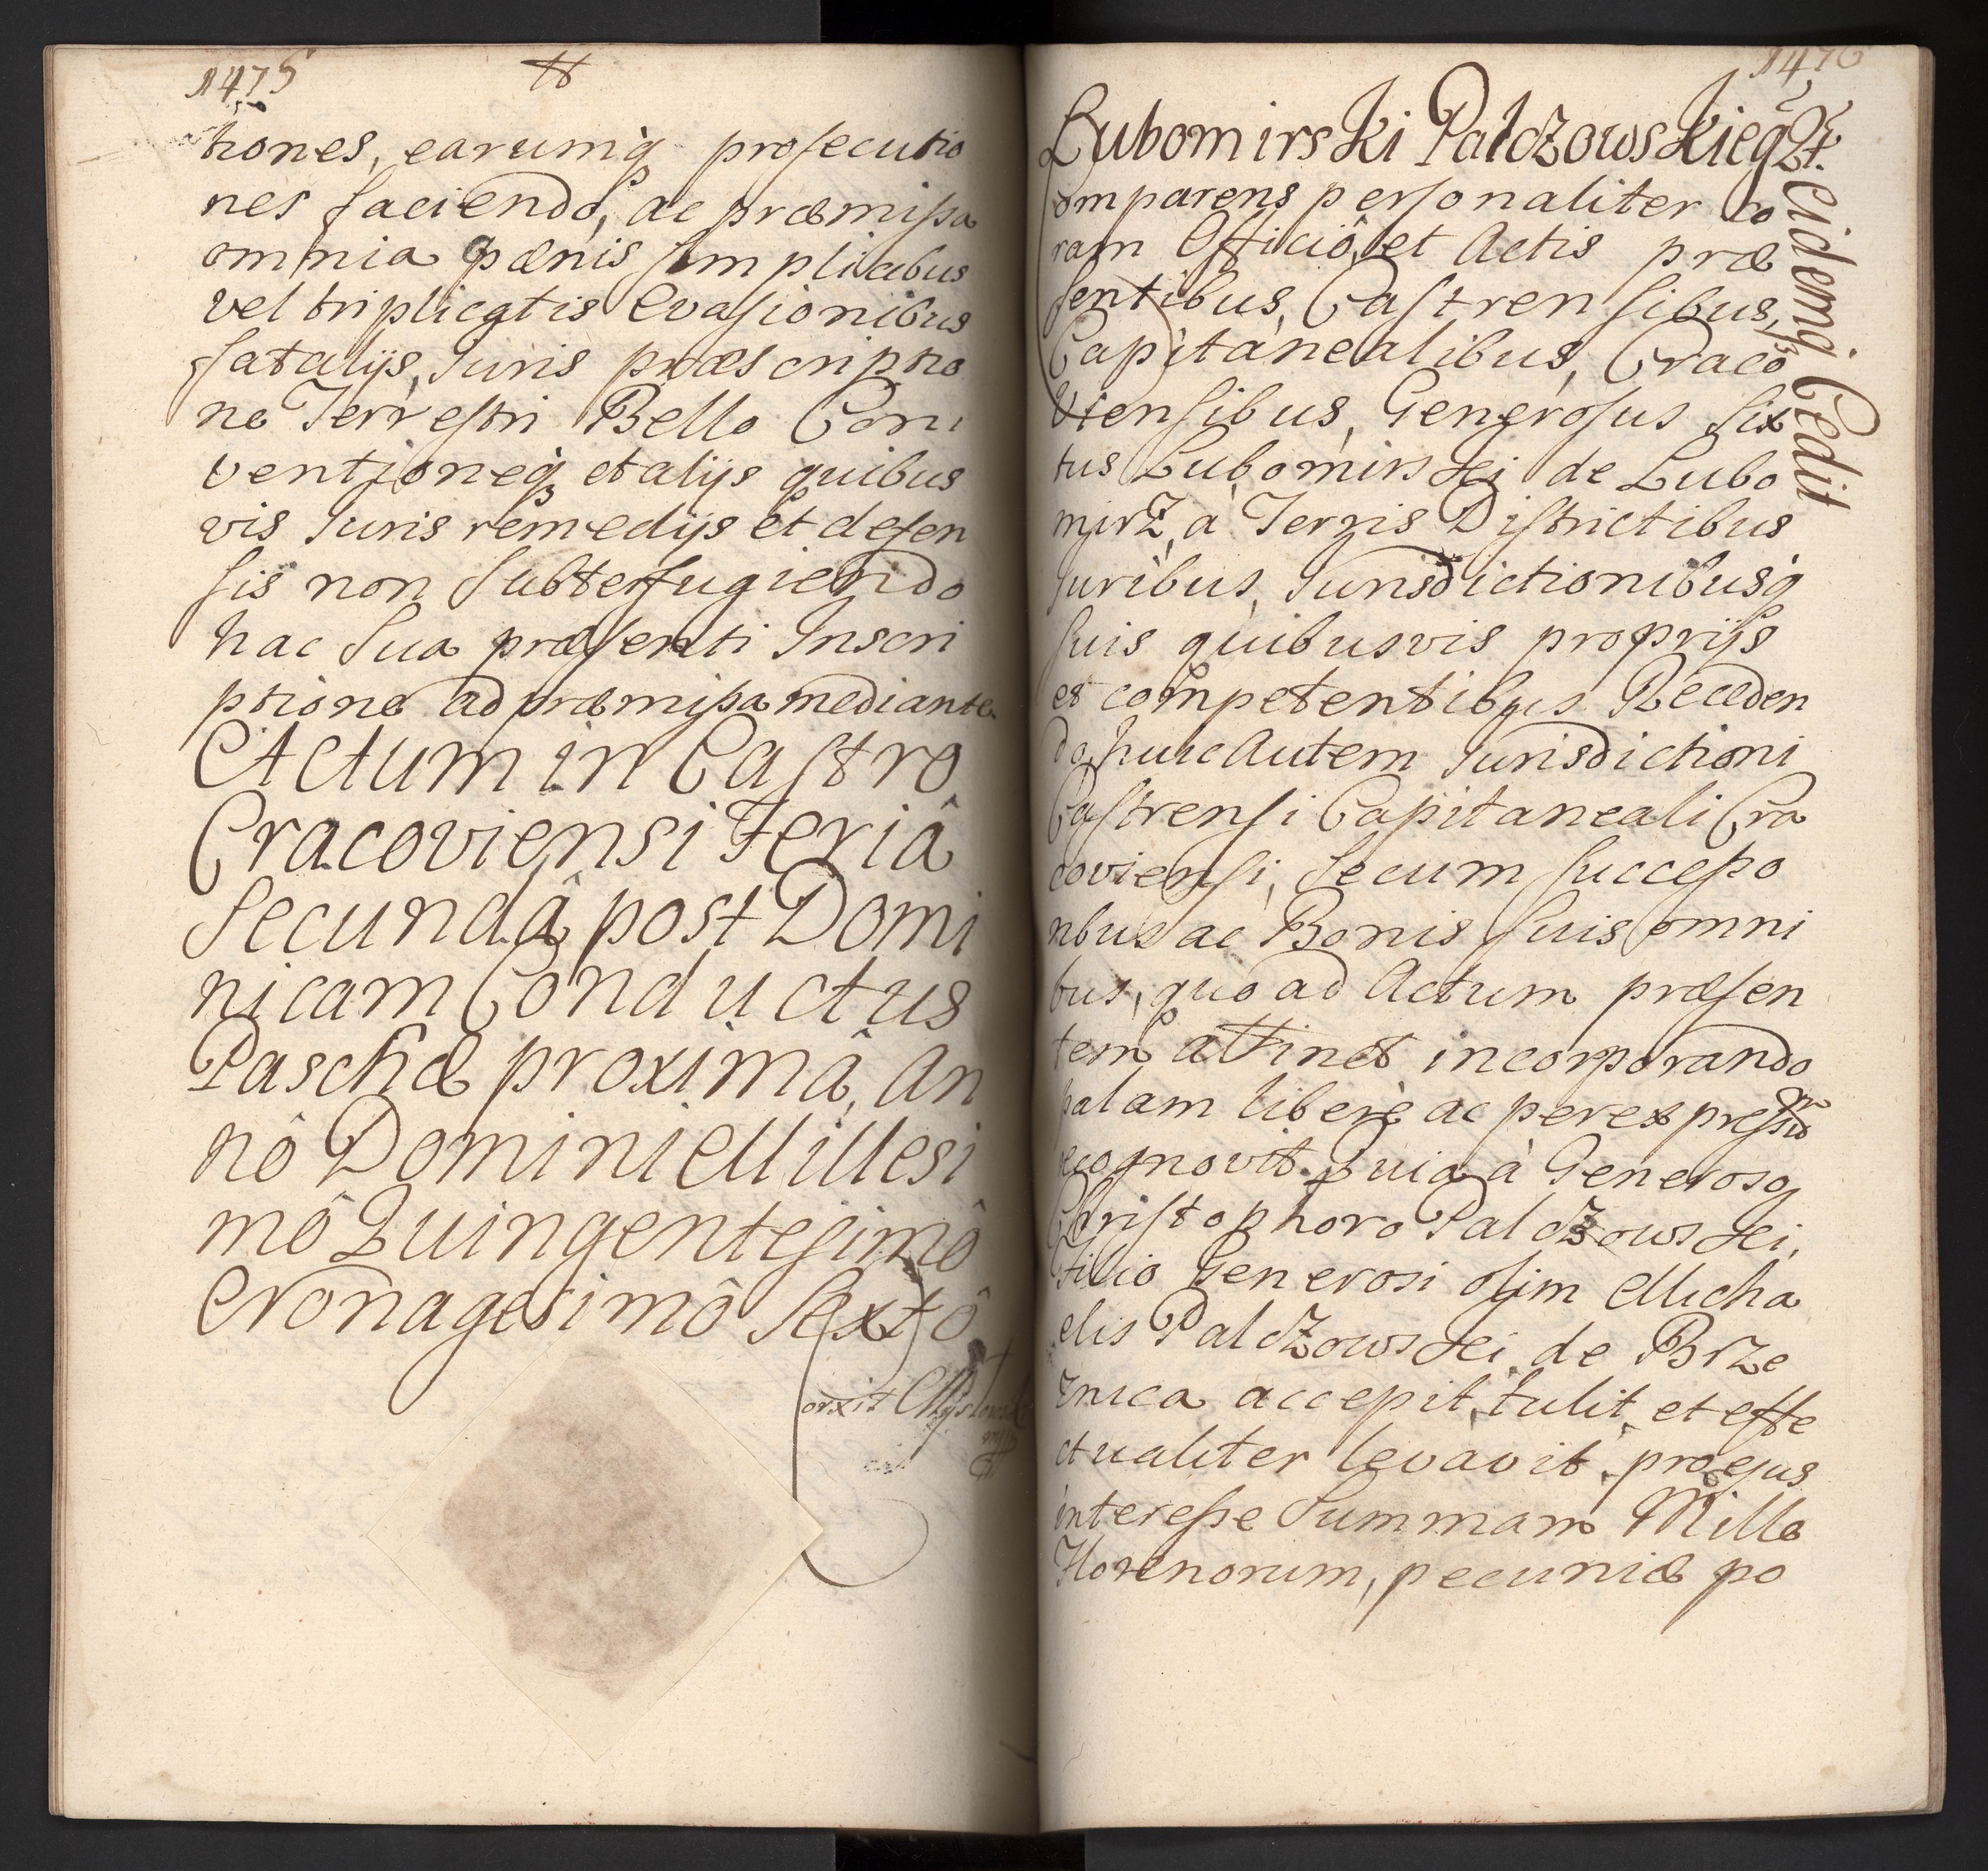 1475
tiones, earumq̃ prosecutio
nes faciendo, ac præmissa
omnia pœnis simplicibus
vel triplicatis Evasionibus
fatalijs, Juris præscriptio
ne Terrestri Bello Con
ventioneq̃ et alijs quibus
vis Juris remedijs et defen
sis non Subterfugiendo
hac Sua præsenti Inscri
ptione ad præmissa mediante
Actum in Castro
Cracoviensi Feriâ
Secundâ post Domi
nicam Conductus
Paschæ proximâ, An
nô Domini Millesi
mô Quingentesimô
Nonagesimô Sextô
1476
Lubomirski Palczowskieg
Eidemq̃ Cedit
omparens personaliter co
ram Officiô, et Actis præ
sentibus, Castrensibus,
Capitanealibus, Craco
viensibus, Generosus Six
tus Lubomirski de Lubo
mirz, a Terris Districtibus
Juribus, Jurisdictionibusq̃
suis quibusvis proprijs
et competentibus Receden
do, huic Autem Jurisdictioni
Castrensi Capitaneali Cra
coviensi, Secum Successo
ribus ac Bonis Suis omni
bus, quo ad Actum præsen
tem attinet incorporando
palam liberè ac per expressũ
recognovit. Quia à Generoso
Christophoro Palczowski,
Filio Generosi olim Micha
elis Palczowski de Brze
znica accepit, tulit, et effe
ctualiter levavit, pro ejus
interesse Summam Mille
Florenorum, pecuniæ po